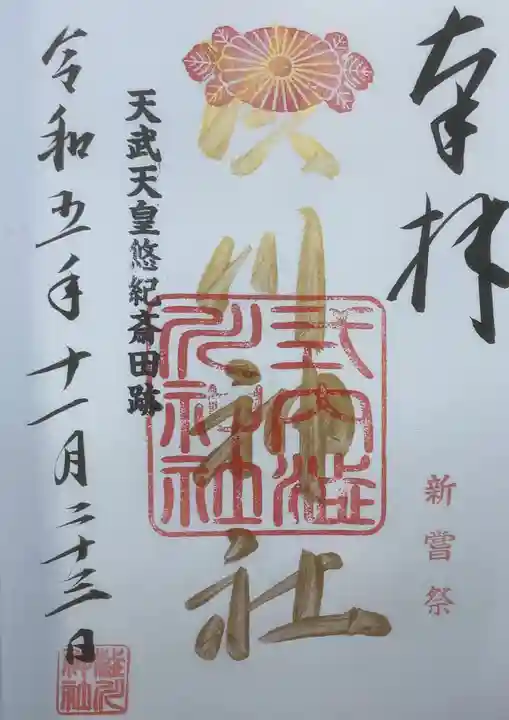 奉拝
新嘗祭
渋川神社
式内澁
川神社
天武天皇悠紀斎田跡
令和五年十一月二十三日
澁川
神社